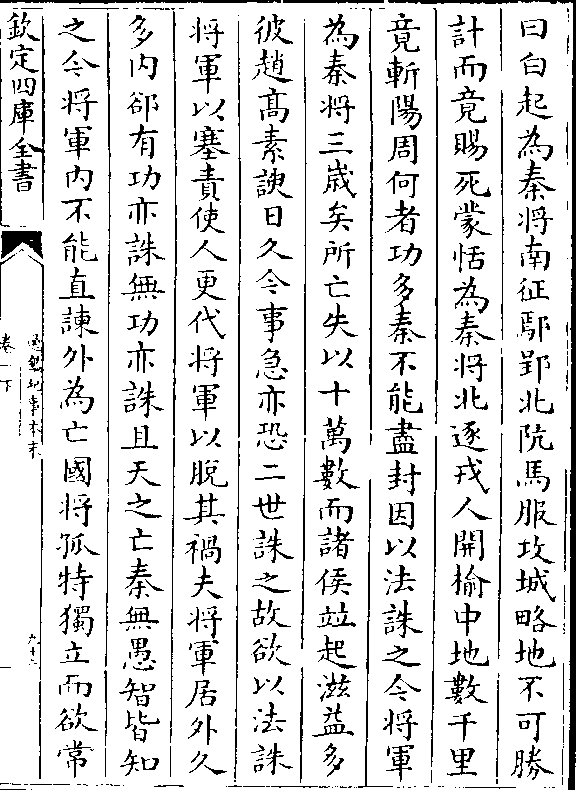 曰白起為秦将南征鄢郢北阬馬服攻城略地不可勝
計而竟賜死蒙恬為秦将北逐戎人開榆中地數千里
竟斬陽周何者功多秦不能盡封因以法誅之今将軍
為秦将三歲矣所亡失以十萬數而諸侯竝起滋益多
彼趙髙素諛日久今事急亦恐二世誅之故欲以法誅
将軍以塞責使人更代将軍以脱其禍夫将軍居外久
多内郤有功亦誅無功亦誅且天之亡秦無愚智皆知
之今将軍内不能直諌外為亡國将孤特獨立而欲常
欽定四庫全書
卷一下